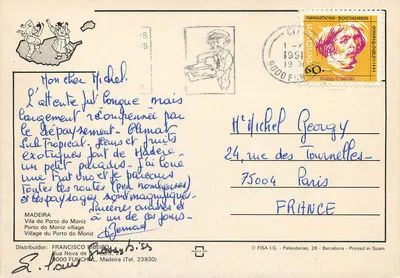 Mon cher Michel.
L'attente fut longue mais
largement récompensée par
le dépaysement - Climat
Sub Tropical - fleurs et fruits
exotiques font de Madère
un petit paradis. J'ai loué
une Fiat Uno et je parcours
toutes les routes (peu nombreuses)
et les paysages sont magnifiques.
Sincères amitiés et
à un de ces jours.
Bernard
MADEIRA
Vila do Porto do Moniz
Porto do Moniz village
Village du Porto do Moniz
Distribuidor: FRANCISCO
Rua Nova de
9000 FUNCHAL, Madeira (Tel. 23930)
1991
9000 FUN
NAVEGADORES PORTUGUESES
60.
Mr Michel Georgy
24, rue des Tournelles-
75004 Paris
FRANCE
© FISA I.G. - Palaudarias, 26 - Barcelona - Printed in Spain